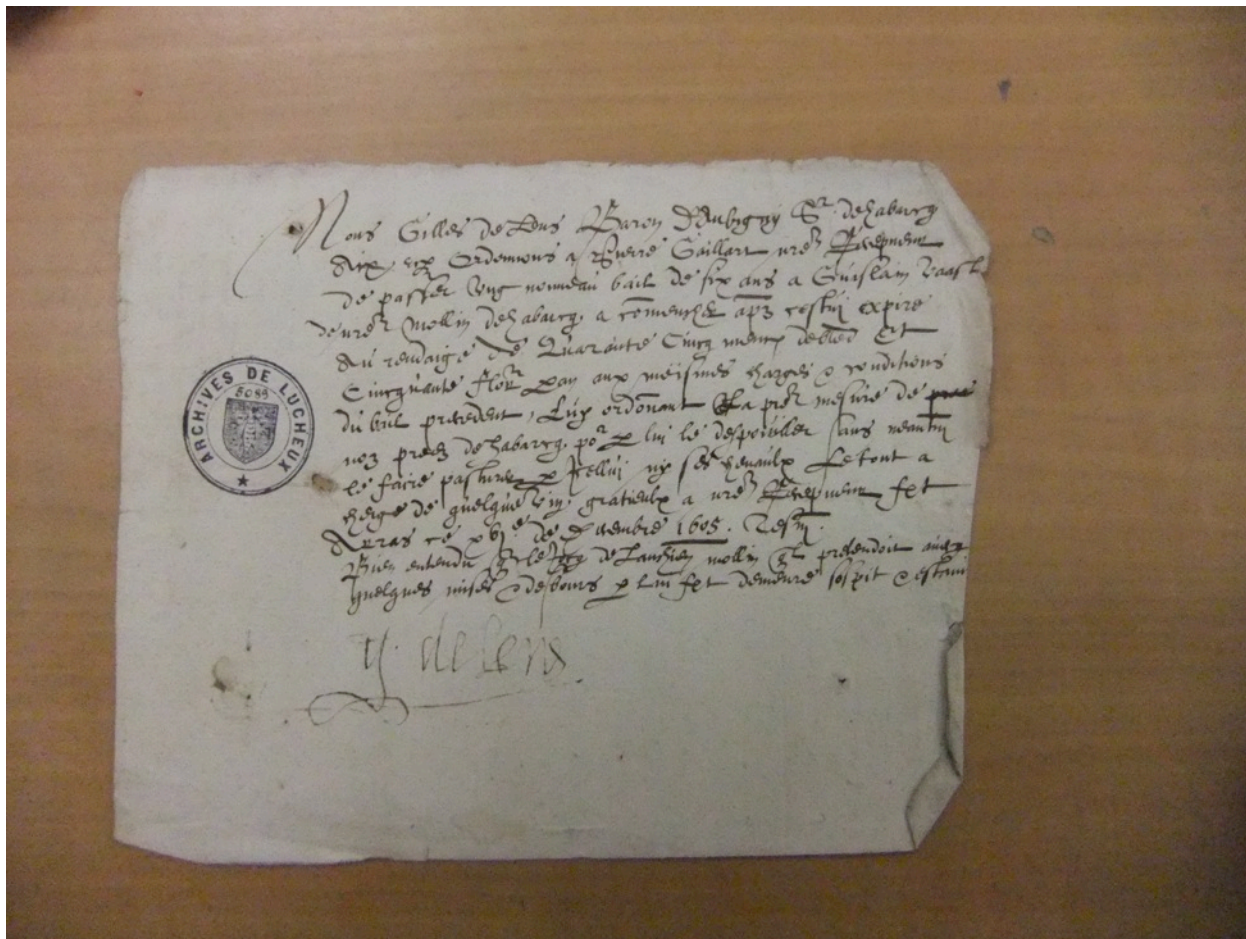 Nous Gilles de Lens Baron D'Aubigny Sr. dehabarcq
Aix Ordonnons a Pierre Gaillart nre Recepueur
de passer Ung nouueau bail de six ans a Guislain Vaast
de nre mollin dehabarcq, a comencher apz cestuy expire
Au rendaige de Quarante Cincq mencx debled Et
Cincquante flor. pan aux meismes charges & conditions
du bail precedent, Luy ordonnant La pre mesure de
noz preez dehabarcq, por p lui le despouiller sans
le faire pasturer p Icellui ny ses cheuaulx Le tout a
cherge de quelque vin gratieulx a nre Recepueur fet
Arras ce xbje de Decembre 1605. Tesm.
Bien entendu de Lanchien mollin ql pretendoit auecq
quelques mises & desbours p luy fet demeure sospit & estaint
G. delens
ARCHIVES DE LUCHEUX
5089